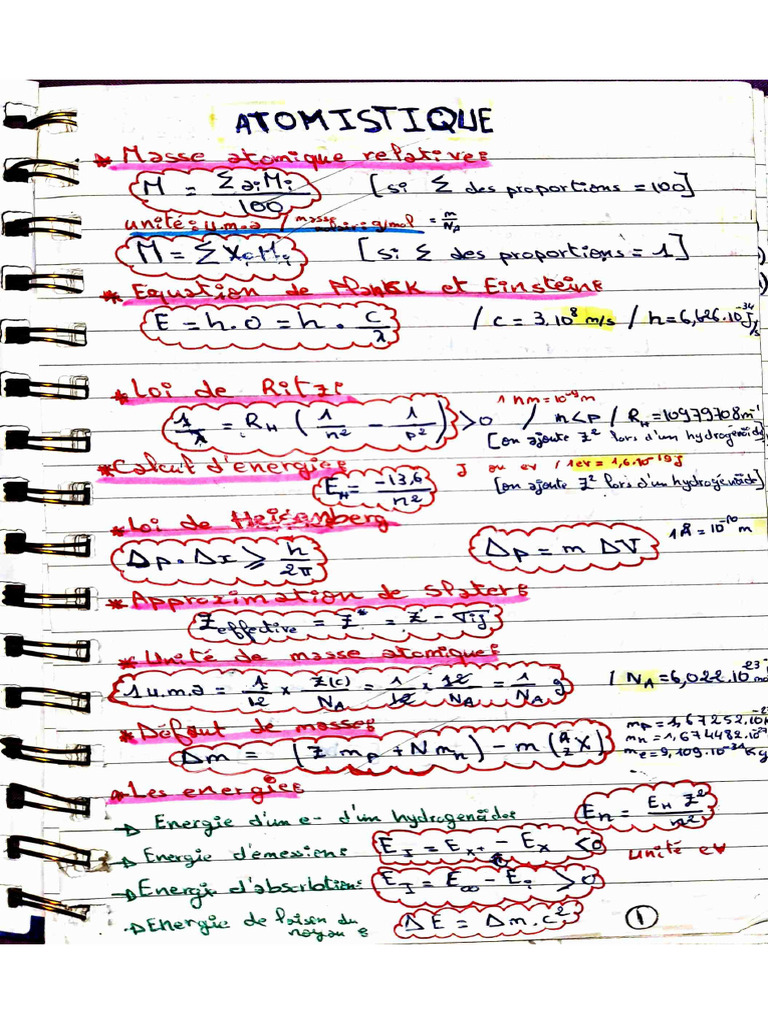 ATOMISTIQUE
* Masse atomique relative :
M = Σ aᵢMᵢ / 100 [si Σ des proportions = 100]
unité : u.m.a / masse molaire : g/mol = m/N_A
M = Σ XᵢMᵢ [si Σ des proportions = 1]
* Equation de Planck et Einstein :
E = h.υ = h . c/λ / c = 3.10⁸ m/s / h = 6,626.10⁻³⁴ J/s
* Loi de Ritz :
1 nm = 10⁻⁹ m
1/λ = R_H (1/n² - 1/p²) > 0 / n<p / R_H = 10979708 m⁻¹
[on ajoute Z² lors d'un hydrogénoïde]
* Calcul d'énergies J ou ev / 1ev = 1,6.10⁻¹⁹ J
E_H = -13,6 / n² [on ajoute Z² lors d'un hydrogénoïde]
* Loi de Heisenberg
Δp . Δx ⩾ h/2π Δp = m ΔV 1Å = 10⁻¹⁰ m
* Approximation de Slater :
Z effective = Z* = Z - σij
* Unité de masse atomique :
1 u.m.a = 1/12 × Z(c)/N_A = 1/12 × 12/N_A = 1/N_A g / N_A = 6,022.10²³
* Défaut de masse :
Δm = (Z mp + N mn) - m (ᴬ_Z X)
mp = 1,67252.10
mn = 1,674482.10
me = 9,109.10⁻³¹ Kg
* Les energies
→ Energie d'un e- d'un hydrogenoïdes En = E_H Z² / n²
→ Energie d'émessions E_J = E_X+ - E_X <0 unité ev
→ Energie d'absorbtions E_J = E∞ - Eᵢ > 0
→ Energie de laisen du noyau : ΔE = Δm.c²
1